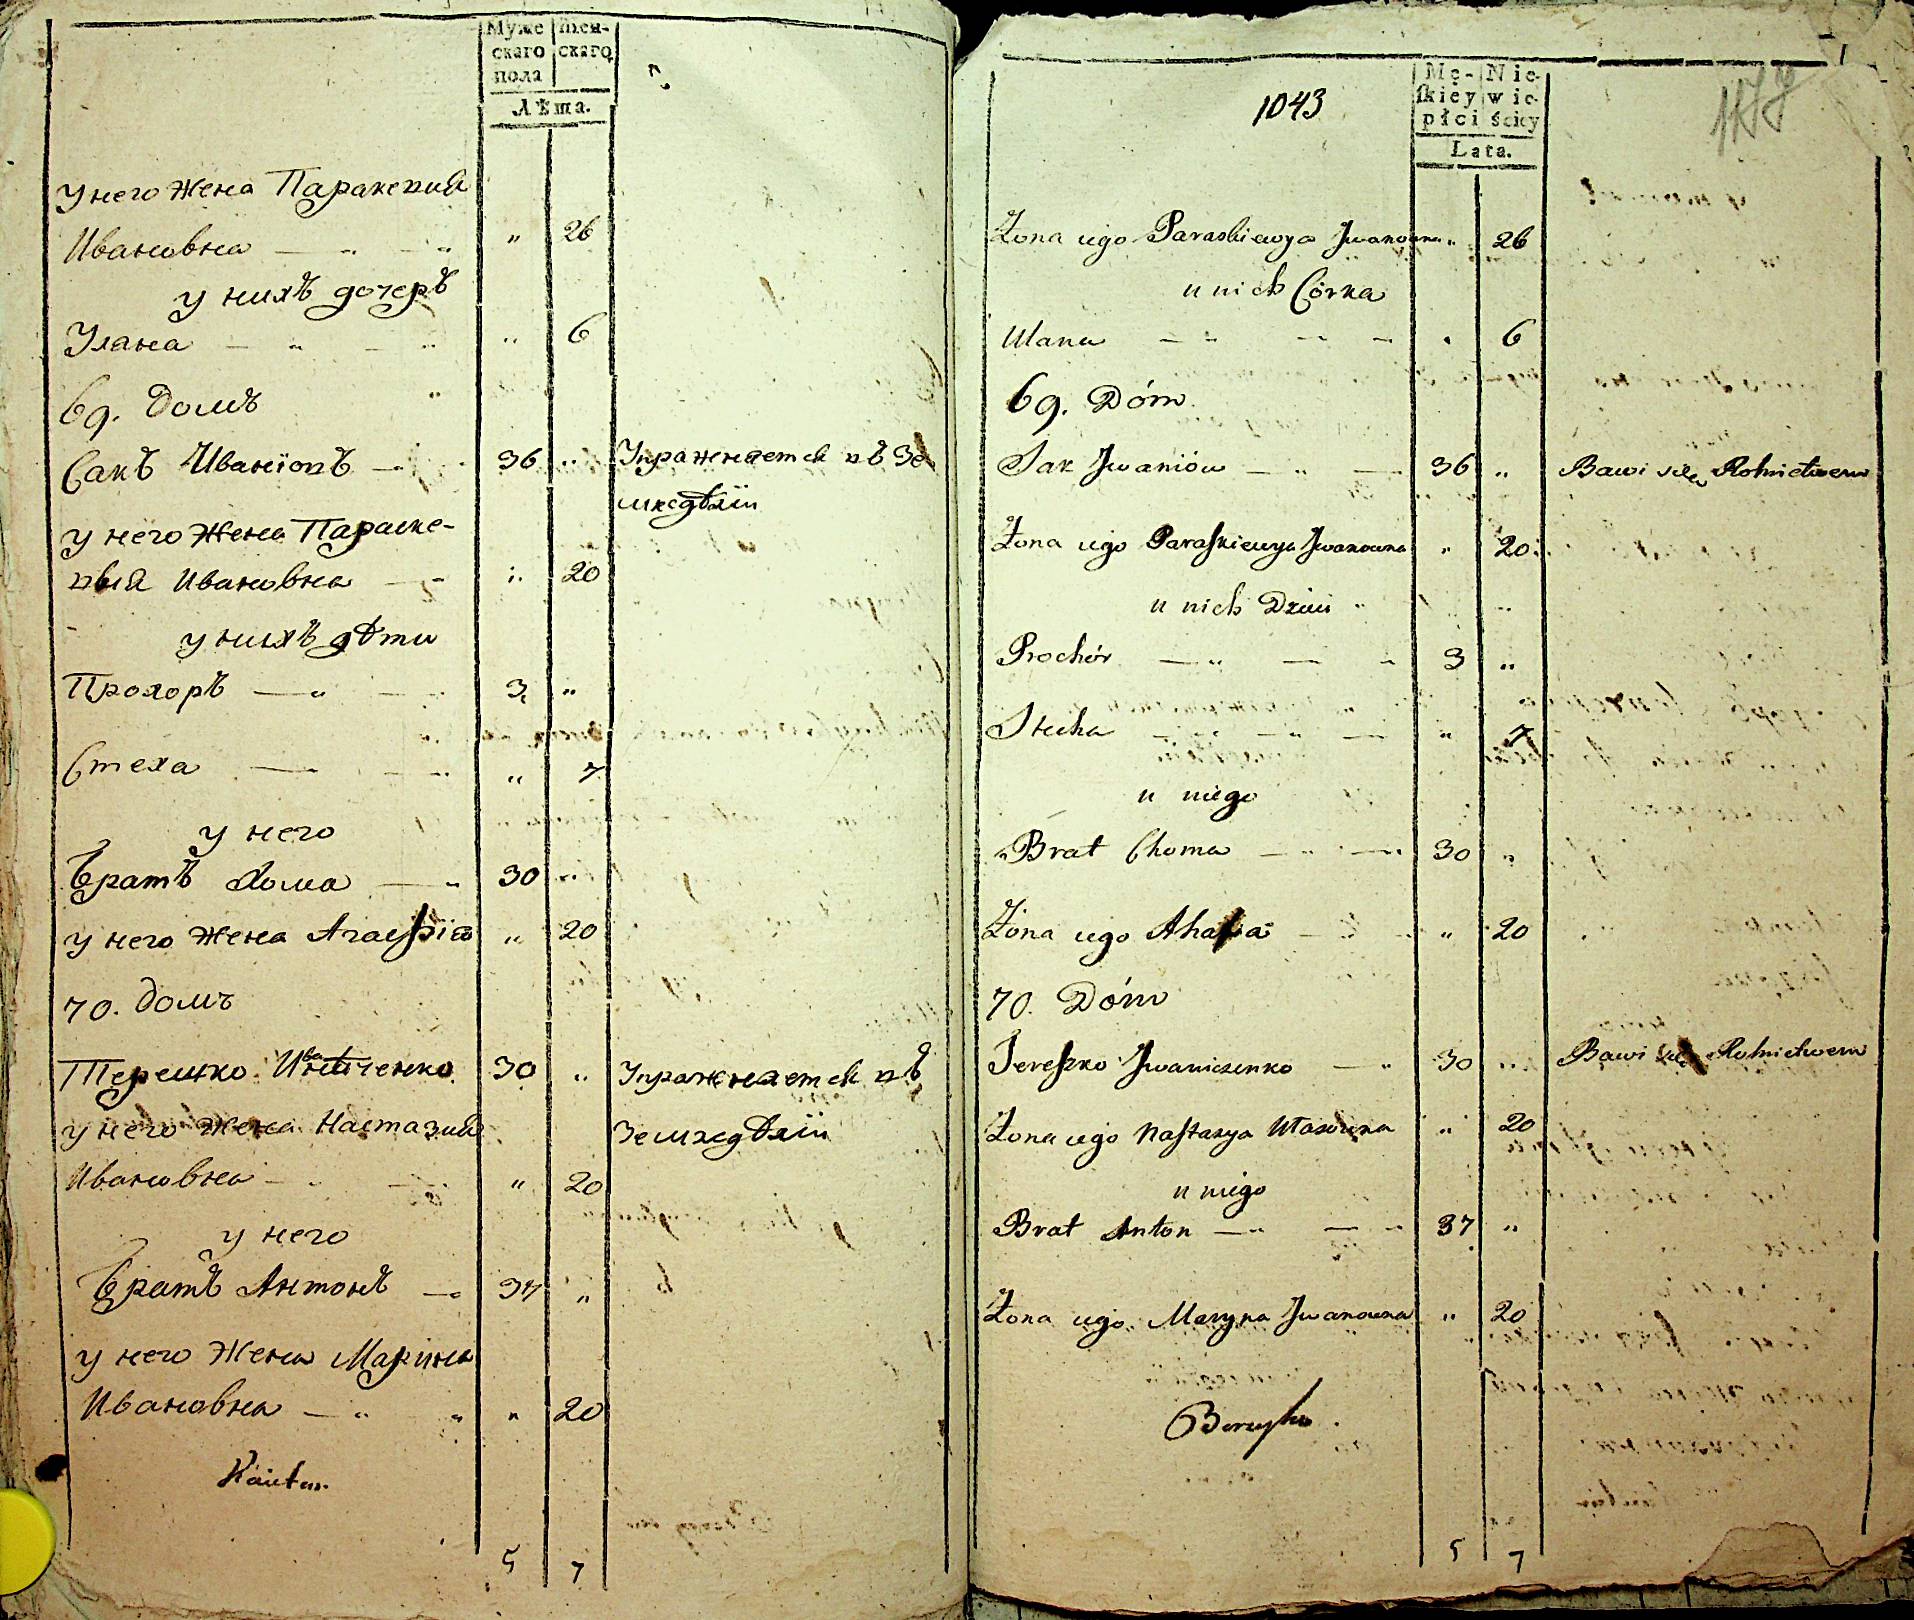 Муже
скаго
пола
Жен-
скаго
Лѣта.
У него жена Параскевия
Ивановна — „ — „ „ 26
у нихъ дочерь
Улана — „ — „ „ 6
69. Домъ
Сакъ Иванїовъ — „ 36 „ Упражняется въ Зе
мледѣлїи
у него жена Параске-
выя Ивановна — „ 20
у нихъ дѣти
Прохоръ — „ — 3 „
Стеха — — „ „ 7
у него
Братъ Хома — „ 30 „
у него жена Агафїя „ 20
70. домъ
Терешко Иваниченко 30 „ Упражняется въ
у него жена Настазия Земледѣлїи
Ивановна — „ „ 20
у него
Братъ Антонъ — 37 „
у него Жена Марина
Ивановна — „ „ „ 20
5 7
1043
Mę-
skiey
płci
Nie-
wie-
ściey
Lata.
Żona iego Paraskiewya Jwanowna „ 26
u nich Córka
Ulana — „ — „ — „ 6
69. Dóm
Sak Jwaniów — „ — 36 „ Bawi się Rolnictwem
Żona iego Paraskiewya Jwanowna „ 20
u nich Dzieci
Prochór — „ — „ 3 „
Stecha — „ — „ — „ 7
u niego
Brat Choma — „ — „ 30 „
Żona iego Ahafia — „ „ 20
70. Dóm
Tereszko Jwaniczenko — „ 30 „ Bawi się Rolnictwem
Żona iego Nastazya Ułasowna „ 20
u niego
Brat Anton — „ — „ 37 „
Żona iego Maryna Jwanowna „ 20
5 7